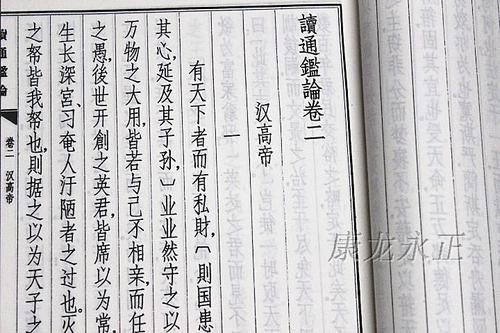 讀通鑑論卷二
汉高帝
一
有天下者而有私財,〔則国患
其心,延及其子孙,〕业业然守之以
万物之大用,皆若与己不相亲,而任
之愚,後世开創之英君,皆席以为常
生长深宫、习奄人汙陋者之过也。灭
之帑皆我帑也,則据之以为天子之
讀通鑑論
卷二 汉高帝
康龙永正